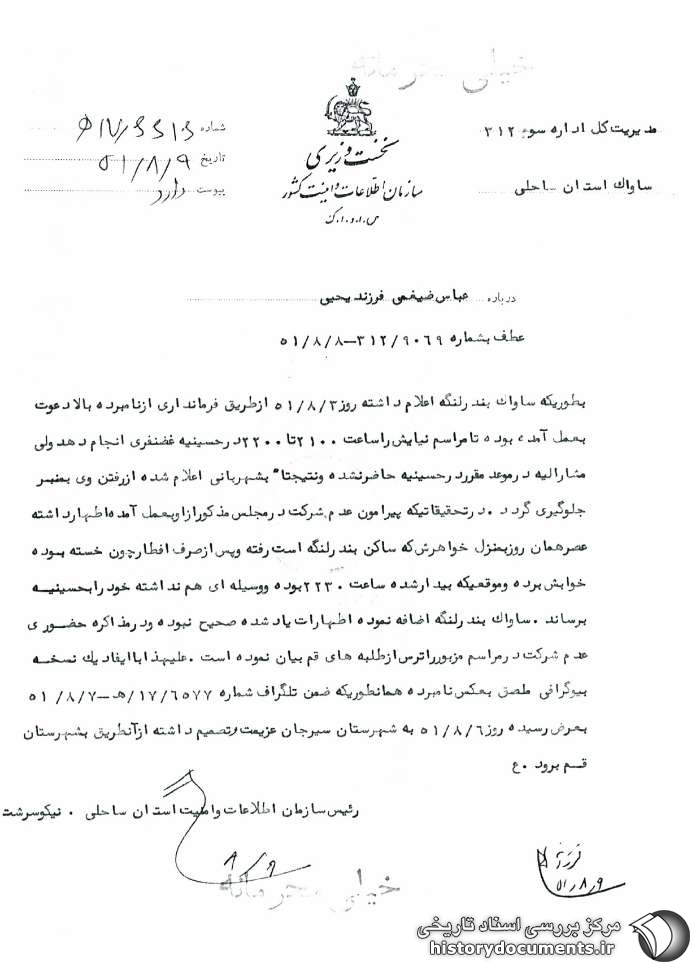 خیلی محرمانه
مدیریت کل اداره سوم ۳۱۲
ساواك استان ساحلی
نخست وزیری
سازمان اطلاعات و امنیت کشور
س.ا.و.ا.ك
شماره
تاریخ ۵۱/۸/۹
پیوست دارد
درباره عباس ضیغمی فرزند یحیی
عطف بشماره ۳۱۲/۹۰۶۹-۵۱/۸/۸
بطوریکه ساواك بندرلنگه اعلام داشته روز ۵۱/۸/۳ ازطریق فرمانداری ازنامبرده بالا دعوت
بعمل آمده بوده تامراسم نیایش راساعت ۲۱۰۰ تا ۲۲۰۰ درحسینیه غضنفری انجام دهد ولی
مشارالیه درموعد مقرردرحسینیه حاضرنشده ونتیجتا" بشهربانی اعلام شده ازرفتن وی بمنبر
جلوگیری گردد .درتحقیقاتیکه پیرامون عدم شرکت درمجلس مذکورازاوبعمل آمده اظهارداشته
عصرهمان روزبمنزل خواهرش که ساکن بندرلنگه است رفته وپس ازصرف افطارچون خسته بوده
خوابش برده وموقعیکه بیدارشده ساعت ۲۲۳۰ بوده ووسیله ای هم نداشته خودرابحسینیه
برساند .ساواك بندرلنگه اضافه نموده اظهارات یاد شده صحیح نبوده ودرمذاکره حضوری
عدم شرکت درمراسم مزبورراترس ازطلبه های قم بیان نموده است .علیهذا باایفاد یك نسخه
بیوگرافی ملصق بعکس نامبرده همانطوریکه ضمن تلگراف شماره ۱۷/۶۵۷۷/ه-۵۱/۸/۷
بعرض رسیده روز ۵۱/۸/۶ به شهرستان سیرجان عزیمت وتصمیم داشته ازآنطریق بشهرستان
قم برود .ع
رئیس سازمان اطلاعات وامنیت استان ساحلی . نیکوسرشت
۸/۹
۵۱/۸/۹
خیلی محرمانه
مرکز بررسی اسناد تاریخی
historydocuments.ir